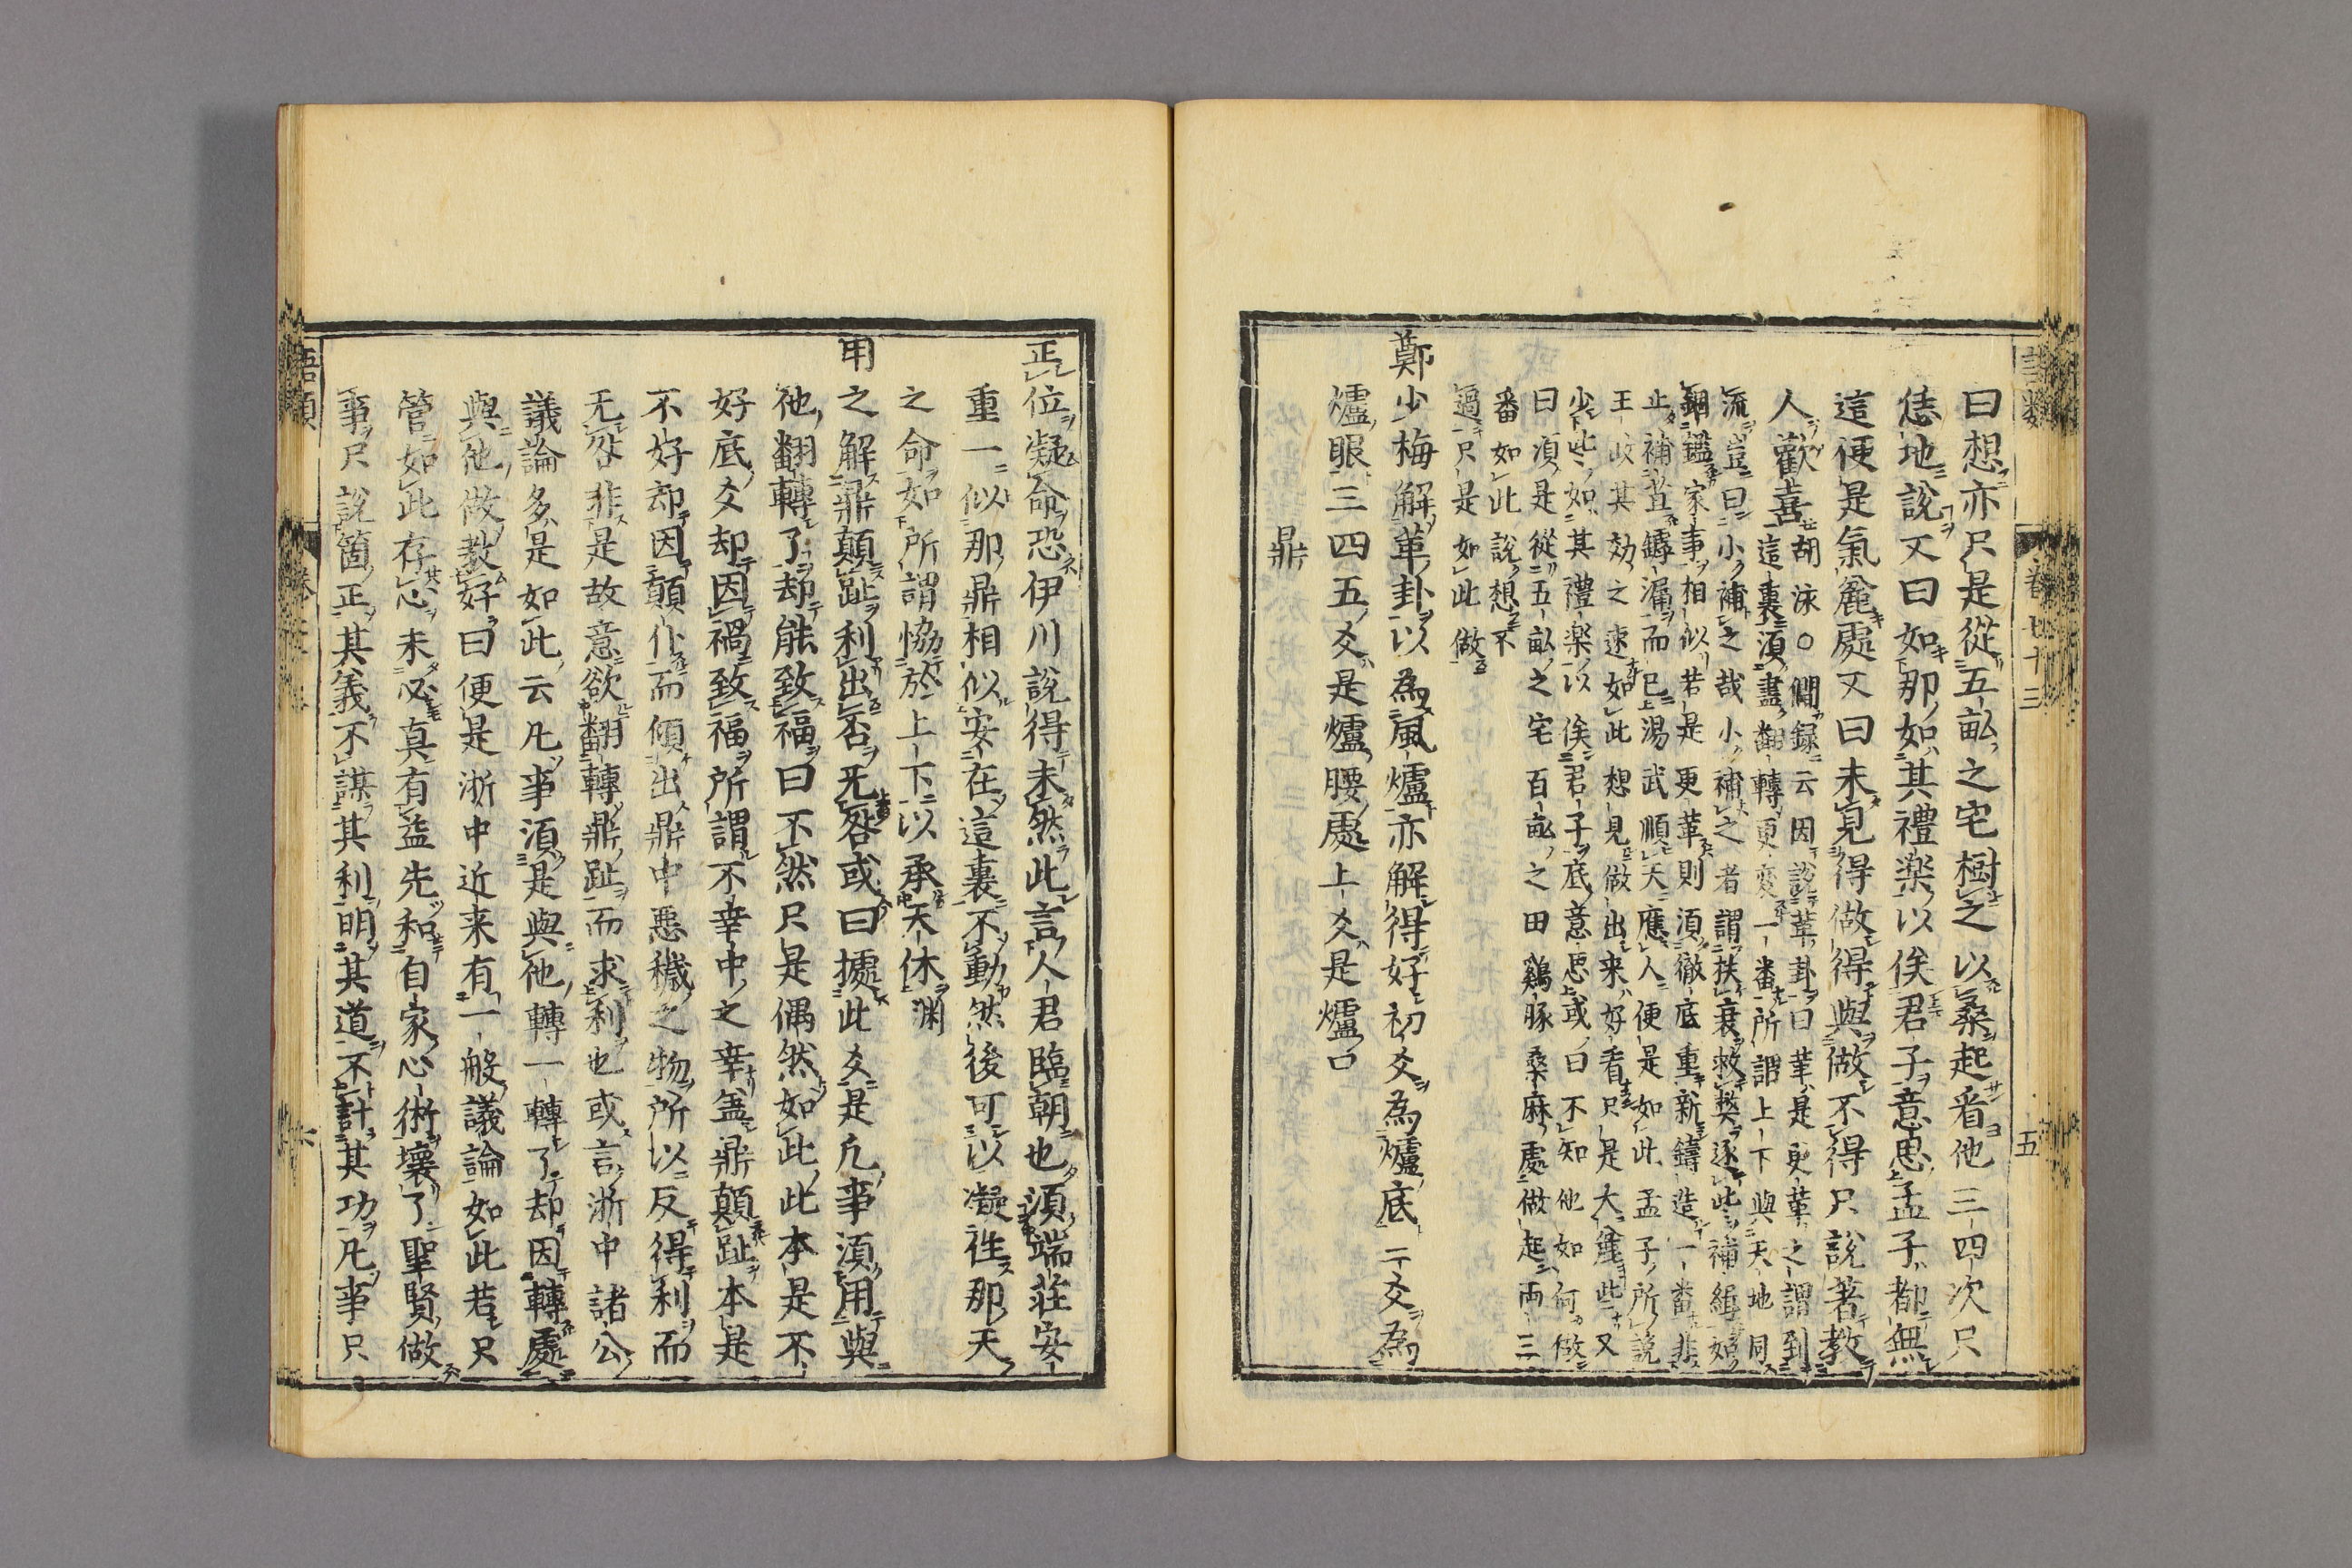 曰想亦只是從五畆之宅樹之以桑起看他三四次只
恁地說又曰如那如其禮楽以俟君子意思孟子都無
這便是氣麄處又曰未見得做得與做不得只說著教
人歡喜
胡泳○僩録云因說革卦曰革是更革之謂到
這裏須盡翻轉更変一番所謂上下與天地同
流豈曰小補之哉小補之者謂扶衰救獘逐些補緝如
錮鑪家事相似若是更革則須徹底重新鑄造一番非
止補苴罅漏而已湯武順天應人便是如此孟子所說
王政其効之速如此想見做出来好看只是大麄些又
少些如其禮楽以俟君子底意思或曰不知他如何做
曰須是從五畆之宅百畆之田鷄豚桑麻處做起両三
番如此說想不
過只是如此做
鄭少梅解革卦以為風爐亦解得好初爻為爐底二爻為
爐眼三四五爻是爐腰處上爻是爐口
鼎
正位凝命恐伊川說得未然此言人君臨朝也須端莊安
重一似那鼎相似安在這裏不動然後可以凝住那天
之命如所謂恊於上下以承天休 淵
用之解鼎顛趾利出否无咎或曰據此爻是凢事須用與
他翻轉了却能致福曰不然只是偶然如此此本是不
好底爻却因禍致福所謂不幸中之幸盖鼎顛趾本是
不好却因顛仆而傾出鼎中悪穢之物所以反得利而
无咎非是故意欲翻轉鼎趾而求利也或言浙中諸公
議論多是如此云凢事須是與他轉一轉了却因轉處
與他做教好曰便是浙中近来有一般議論如此若只
管如此存心未必真有益先和自家心術壊了聖賢做
事只說箇正其義不謀其利明其道不計其功凢事只
語類
卷七十三
五
語類
六